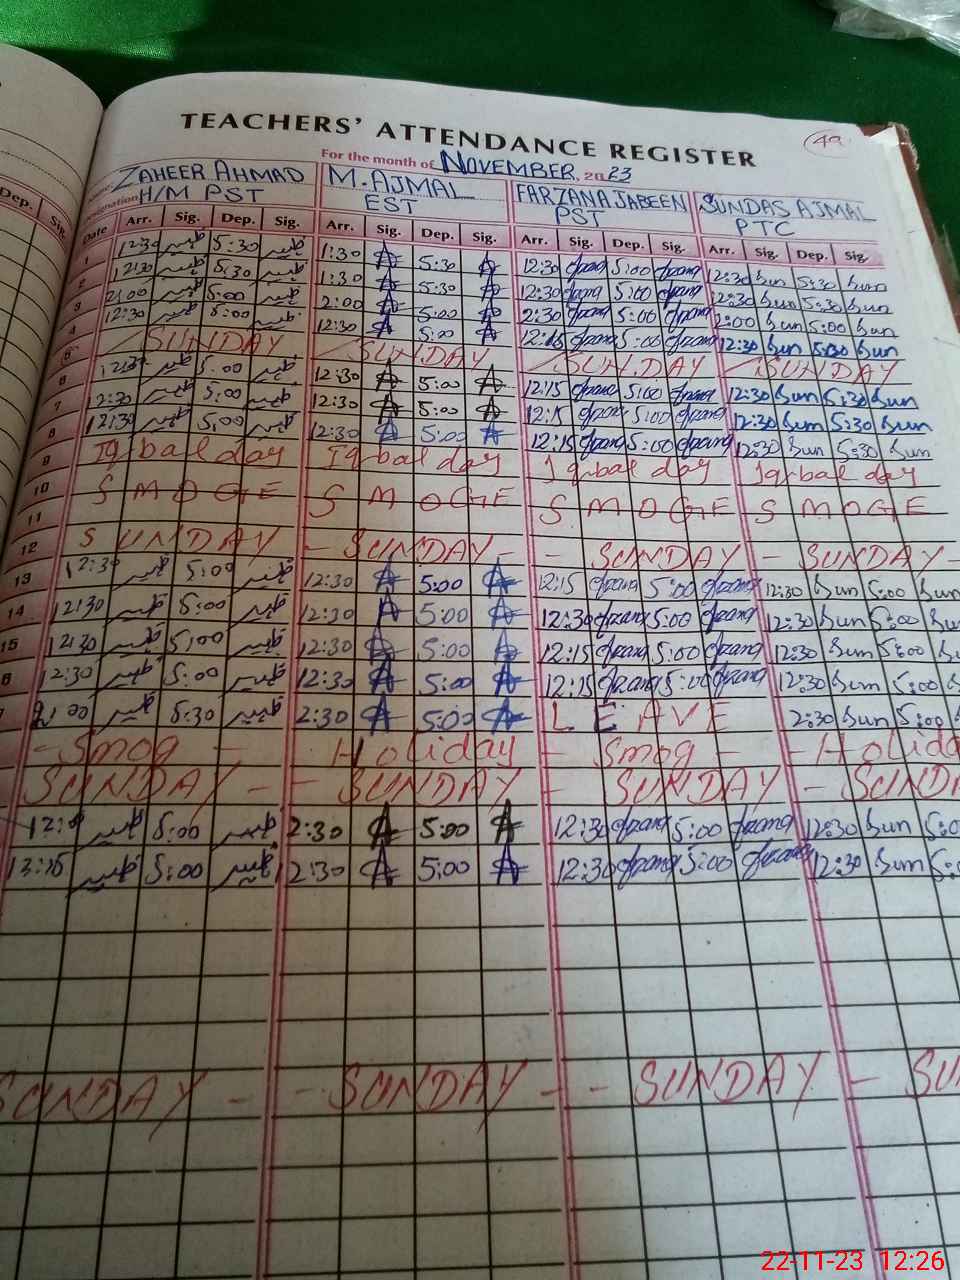 TEACHERS' ATTENDANCE REGISTER 49
For the month of NOVEMBER, 2023
Name: ZAHEER AHMAD M. AJMAL FARZANA JABEEN SUNDAS AJMAL
Designation H/M PST EST PST PTC
Dep. Sig. Date Arr. Sig. Dep. Sig. Arr. Sig. Dep. Sig. Arr. Sig. Dep. Sig. Arr. Sig. Dep. Sig.
1 12:30 ظہیر 5:30 ظہیر 1:30 A 5:30 A 12:30 5:00 12:30 Sun 5:30 Sun
2 12:30 ظہیر 5:30 ظہیر 1:30 A 5:30 A 12:30 5:00 12:30 Sun 5:30 Sun
3 2:00 ظہیر 5:00 ظہیر 2:00 A 5:00 A 2:30 5:00 2:00 Sun 5:00 Sun
4 12:30 ظہیر 5:00 ظہیر 12:30 A 5:00 A 12:15 5:00 12:30 Sun 5:30 Sun
5 SUNDAY SUNDAY SUNDAY SUNDAY
6 12:30 ظہیر 5:00 ظہیر 12:30 A 5:00 A 12:15 5:00 12:30 Sun 5:30 Sun
7 2:30 ظہیر 5:00 ظہیر 12:30 A 5:00 A 12:15 5:00 12:30 Sun 5:30 Sun
8 12:30 ظہیر 5:00 ظہیر 12:30 A 5:00 A 12:15 5:00 12:30 Sun 5:30 Sun
9 Iqbal day Iqbal day Iqbal day Iqbal day
10 SMOGE SMOGE SMOGE SMOGE
11
12 SUNDAY - SUNDAY - - SUNDAY - SUNDAY -
13 12:30 ظہیر 5:00 ظہیر 12:30 A 5:00 A 12:15 5:00 12:30 Sun 5:00 Sun
14 12:30 ظہیر 5:00 ظہیر 12:30 A 5:00 A 12:30 5:00 12:30 Sun 5:00 Sun
15 12:30 ظہیر 5:00 ظہیر 12:30 A 5:00 A 12:15 5:00 12:30 Sun 5:00
6 12:30 ظہیر 5:00 ظہیر 12:30 A 5:00 A 12:15 5:00 12:30 Sun 5:00
2:00 ظہیر 5:30 ظہیر 2:30 A 5:00 A LEAVE 2:30 Sun 5:00
- Smog - Holiday - Smog - - Holida
SUNDAY - - SUNDAY - SUNDAY - SUNDA
ظہیر 5:00 ظہیر 2:30 A 5:00 A 12:30 5:00 12:30 Sun 5:0
ظہیر 5:00 ظہیر 2:30 A 5:00 A 12:30 5:00 12:30 Sun
SUNDAY - - SUNDAY - - SUNDAY - SU
22-11-23 12:26